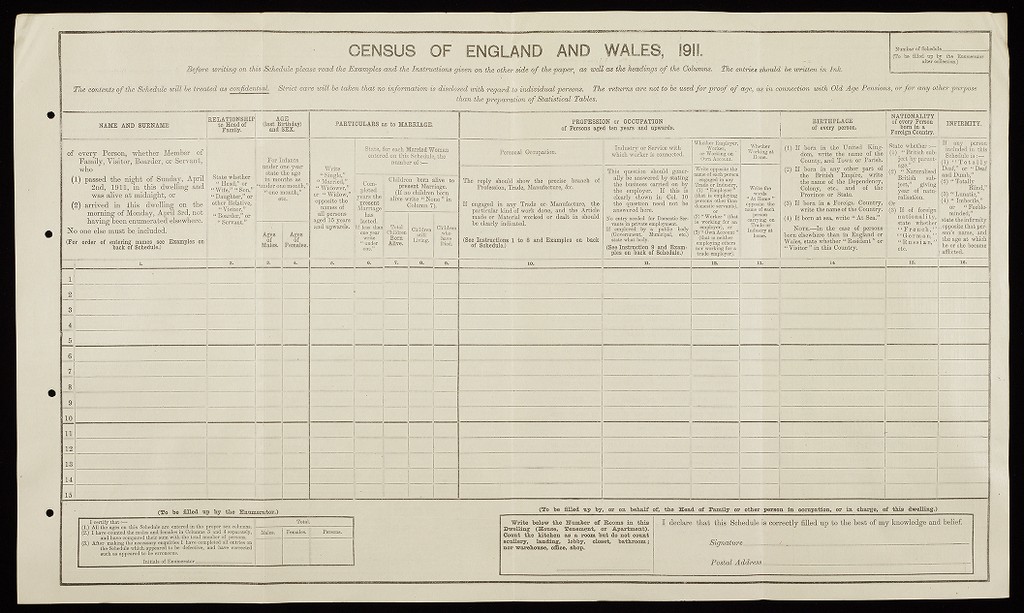 CENSUS OF ENGLAND AND WALES, 1911.
Number of Schedule
(To be filled up by the Enumerator
after collection.)
Before writing on this Schedule please read the Examples and the Instructions given on the other side of the paper, as well as the headings of the Columns. The entries should be written in Ink.
The contents of the Schedule will be treated as confidential. Strict care will be taken that no information is disclosed with regard to individual persons. The returns are not to be used for proof of age, as in connection with Old Age Pensions, or for any other purpose
than the preparation of Statistical Tables.
NAME AND SURNAME
of every Person, whether Member of
Family, Visitor, Boarder, or Servant,
who
(1) passed the night of Sunday, April
2nd, 1911, in this dwelling and
was alive at midnight, or
(2) arrived in this dwelling on the
morning of Monday, April 3rd, not
having been enumerated elsewhere.
No one else must be included.
(For order of entering names see Examples on
back of Schedule.)
RELATIONSHIP
to Head of
Family.
State whether
"Head," or
"Wife," "Son,"
"Daughter," or
other Relative,
"Visitor,"
"Boarder," or
"Servant."
AGE
(last Birthday)
and SEX.
For Infants
under one year
state the age
in months as
"under one month,"
"one month,"
etc.
Ages
of
Males.
Ages
of
Females.
PARTICULARS as to MARRIAGE.
Write
"Single,"
"Married,"
"Widower,"
or "Widow,"
opposite the
names of
all persons
aged 15 years
and upwards.
State, for each Married Woman
entered on this Schedule, the
number of:—
Completed
years the
present
Marriage
has
lasted.
If less than
one year
write
"under
one."
Children born alive to
present Marriage.
(If no children born
alive write "None" in
Column 7).
Total
Children
Born
Alive.
Children
still
Living.
Children
who
have
Died.
PROFESSION or OCCUPATION
of Persons aged ten years and upwards.
Personal Occupation.
The reply should show the precise branch of
Profession, Trade, Manufacture, &c.
If engaged in any Trade or Manufacture, the
particular kind of work done, and the Article
made or Material worked or dealt in should
be clearly indicated.
(See Instructions 1 to 8 and Examples on back
of Schedule.)
Industry or Service with
which worker is connected.
This question should gener-
ally be answered by stating
the business carried on by
the employer. If this is
clearly shown in Col. 10
the question need not be
answered here.
No entry needed for Domestic Ser-
vants in private employment.
If employed by a public body
(Government, Municipal, etc.)
state what body.
(See Instruction 9 and Exam-
ples on back of Schedule.)
Whether Employer,
Worker,
or Working on
Own Account.
Write opposite the
name of each person
engaged in any
Trade or Industry,
(1) "Employer"
(that is employing
persons other than
domestic servants),
or
(2) "Worker" (that
is working for an
employer), or
(3) "Own Account"
(that is neither
employing others
nor working for a
trade employer).
Whether
Working at
Home.
Write the
words
"At Home"
opposite the
name of each
person
carrying on
Trade or
Industry at
home.
BIRTHPLACE
of every person.
(1) If born in the United King-
dom, write the name of the
County, and Town or Parish.
(2) If born in any other part of
the British Empire, write
the name of the Dependency,
Colony, etc., and of the
Province or State.
(3) If born in a Foreign Country,
write the name of the Country.
(4) If born at sea, write "At Sea."
NOTE.—In the case of persons
born elsewhere than in England or
Wales, state whether "Resident" or
"Visitor" in this Country.
NATIONALITY
of every Person
born in a
Foreign Country.
State whether:—
(1) "British sub-
ject by parent-
age."
(2) "Naturalised
British sub-
ject," giving
year of natu-
ralisation.
Or
(3) If of foreign
nationality,
state whether
"French,"
"German,"
"Russian,"
etc.
INFIRMITY.
If any person
included in this
Schedule is:—
(1) "Totally
Deaf," or "Deaf
and Dumb,"
(2) "Totally
Blind,"
(3) "Lunatic,"
(4) "Imbecile,"
or "Feeble-
minded,"
state the infirmity
opposite that per-
son's name, and
the age at which
he or she became
afflicted.
1. 2. 3. 4. 5. 6. 7. 8. 9. 10. 11. 12. 13. 14. 15. 16.
1
2
3
4
5
6
7
8
9
10
11
12
13
14
15
(To be filled up by the Enumerator.)
I certify that:—
(1) All the ages on this Schedule are entered in the proper sex columns.
(2) I have counted the males and females in Columns 3 and 4 separately,
and have compared their sum with the total number of persons.
(3) After making the necessary enquiries I have completed all entries on
the Schedule which appeared to be defective, and have corrected
such as appeared to be erroneous.
Initials of Enumerator
Total.
Males. Females. Persons.
(To be filled up by, or on behalf of, the Head of Family or other person in occupation, or in charge, of this dwelling.)
Write below the Number of Rooms in this
Dwelling (House, Tenement, or Apartment).
Count the kitchen as a room but do not count
scullery, landing, lobby, closet, bathroom;
nor warehouse, office, shop.
I declare that this Schedule is correctly filled up to the best of my knowledge and belief.
Signature
Postal Address